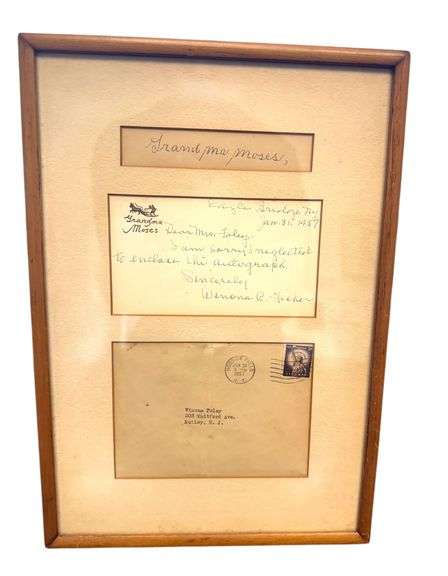 Grandma Moses,
Eagle Bridge Ny
Jan. 31, 1957
Grandma
Moses
Dear Mrs. Foley,
I am sorry I neglected
to enclose the autograph.
Sincerely
Winona R. Fisher
1957
Winona Foley
203 Whitford Ave.
Nutley, N. J.